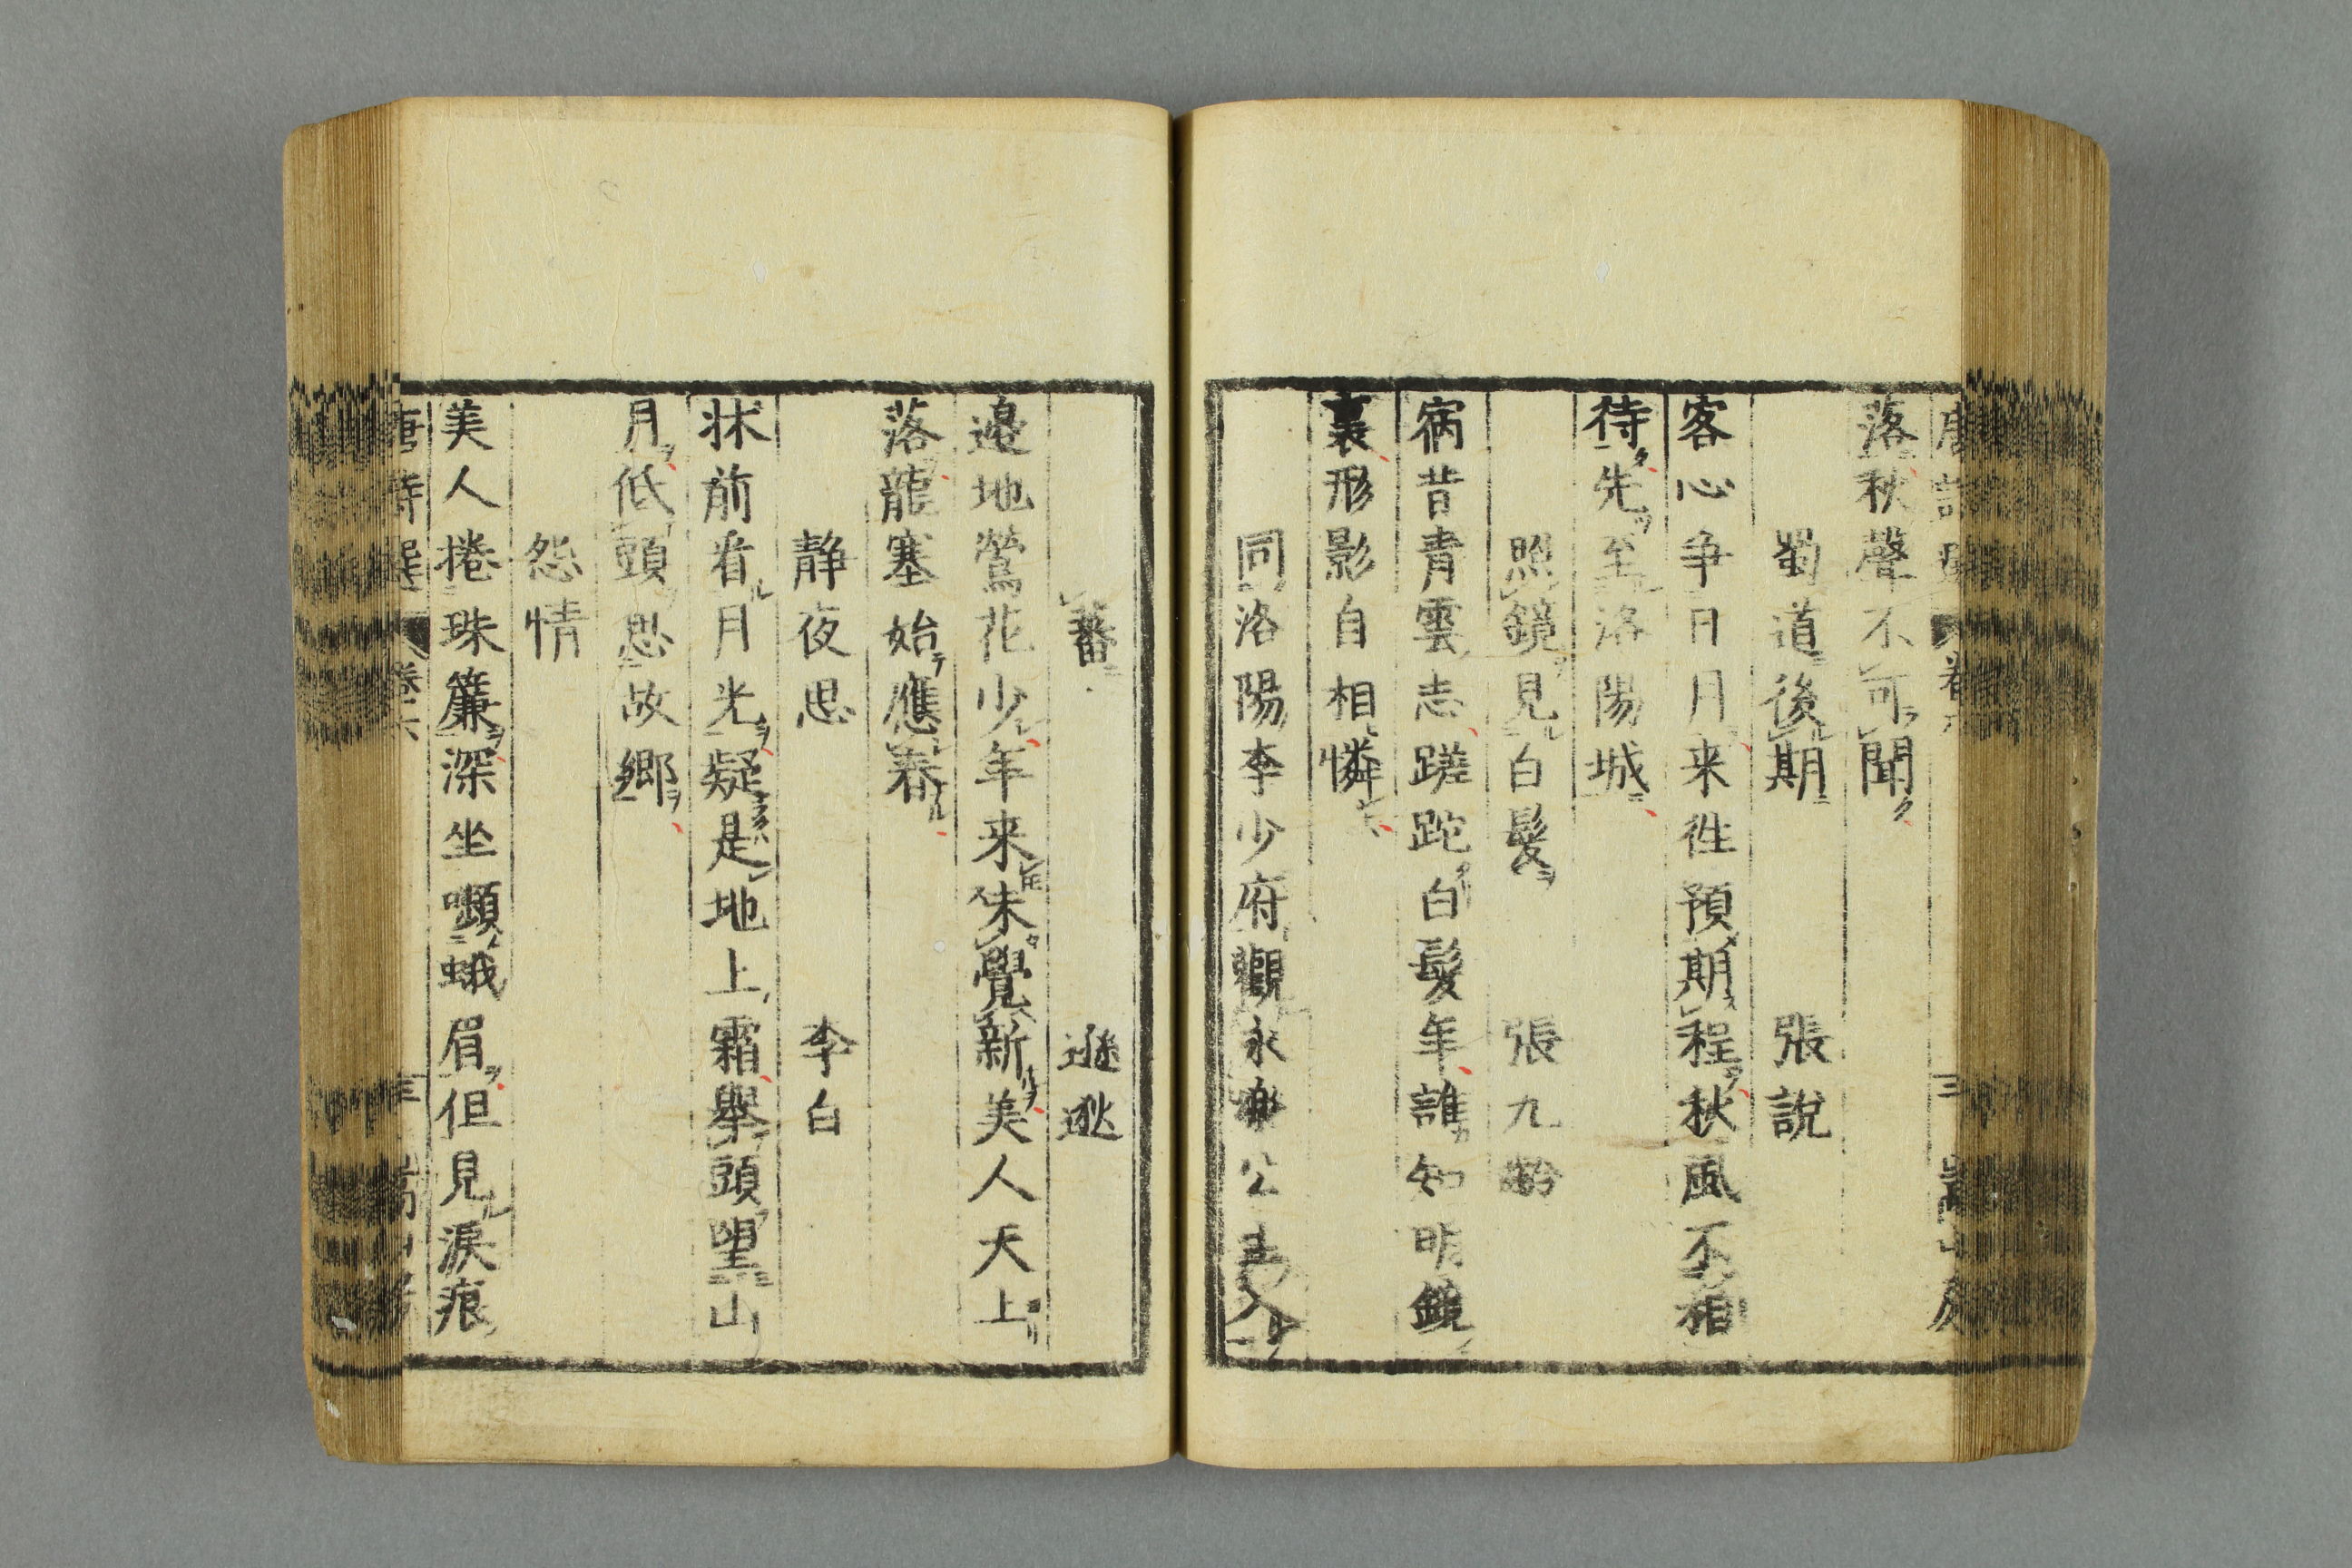 落秋聲不可聞
蜀道後期　張說
客心争日月来徃預期程秋風不相
待先至洛陽城
照鏡見白髪　張九齡
宿昔青雲志蹉跎白髮年誰知明鏡
裏形影自相憐
同洛陽李少府觀永樂公主入
蕃　遜逖
邉地鶯花少年来未覺新美人天上
落龍塞始應春
静夜思　李白
牀前看月光疑是地上霜舉頭望山
月低頭思故郷
怨情
美人捲珠簾深坐嚬蛾眉但見淚痕
唐詩選 卷六